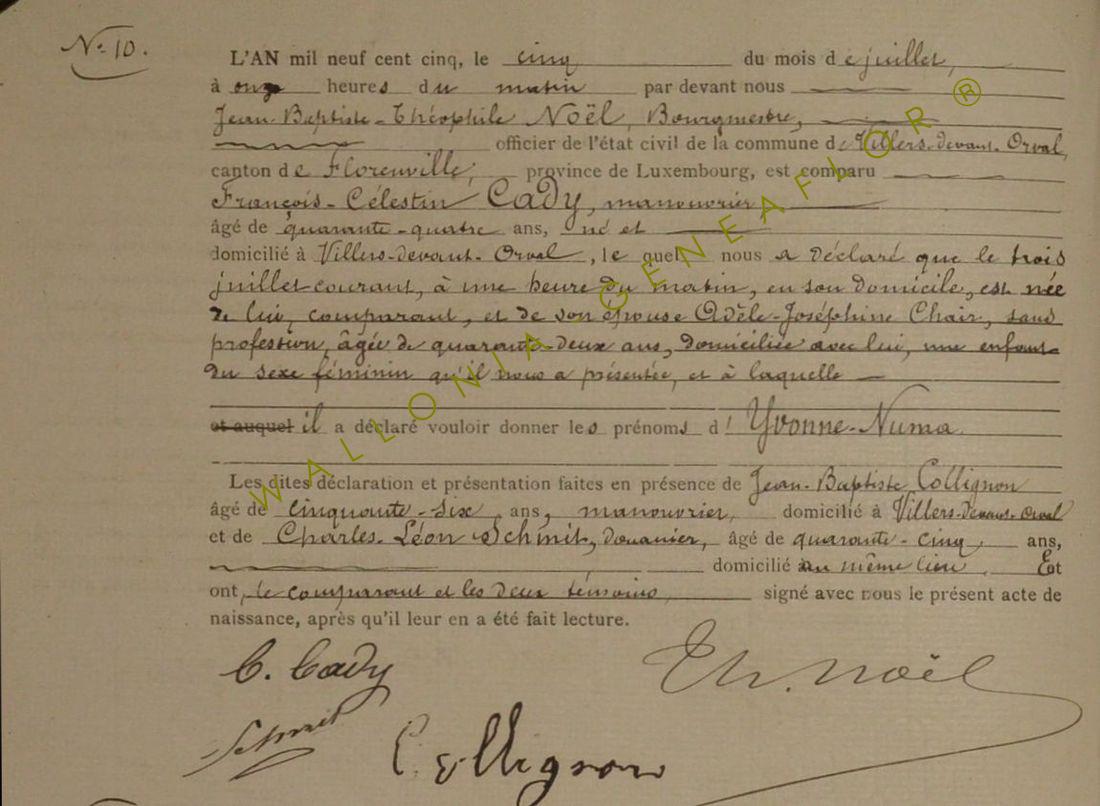 N° 10.
L'AN mil neuf cent cinq, le cinq du mois de juillet,
à onze heures du matin par devant nous
Jean-Baptiste-Théophile Noël, Bourgmestre,
officier de l'état civil de la commune de Villers-devant-Orval,
canton de Florenville, province de Luxembourg, est comparu
François-Célestin Cady, manouvrier
âgé de quarante-quatre ans, né et
domicilié à Villers-devant-Orval, le quel nous a déclaré que le trois
juillet courant, à une heure du matin, en son domicile, est née
de lui, comparant, et de son épouse Adèle-Joséphine Chair, sans
profession, âgée de quarante-deux ans, domiciliée avec lui, une enfant
du sexe féminin qu'il nous a présentée, et à laquelle
et auquel il a déclaré vouloir donner les prénoms d'Yvonne-Numa.
Les dites déclaration et présentation faites en présence de Jean-Baptiste Collignon
âgé de cinquante-six ans, manouvrier, domicilié à Villers-devant-Orval
et de Charles-Léon Schmit, douanier, âgé de quarante-cinq ans,
domicilié au même lieu. Et
ont, le comparant et les deux témoins, signé avec nous le présent acte de
naissance, après qu'il leur en a été fait lecture.
C. Cady
Th. Noël
Schmit
Collignon
WALLONIA-GENEAFLOR ®